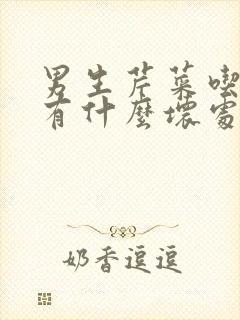 男生芹菜喫
有什麽壞處
奶香逗逗